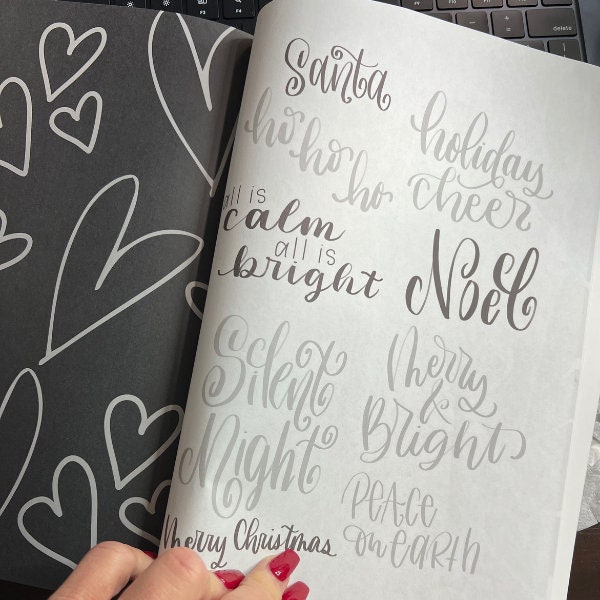 Santa
ho
ho
ho
holiday
cheer
all is
calm
all is
bright
Noel
Silent
Night
Merry
&
Bright
Merry Christmas
PEACE
on EARTH
delete